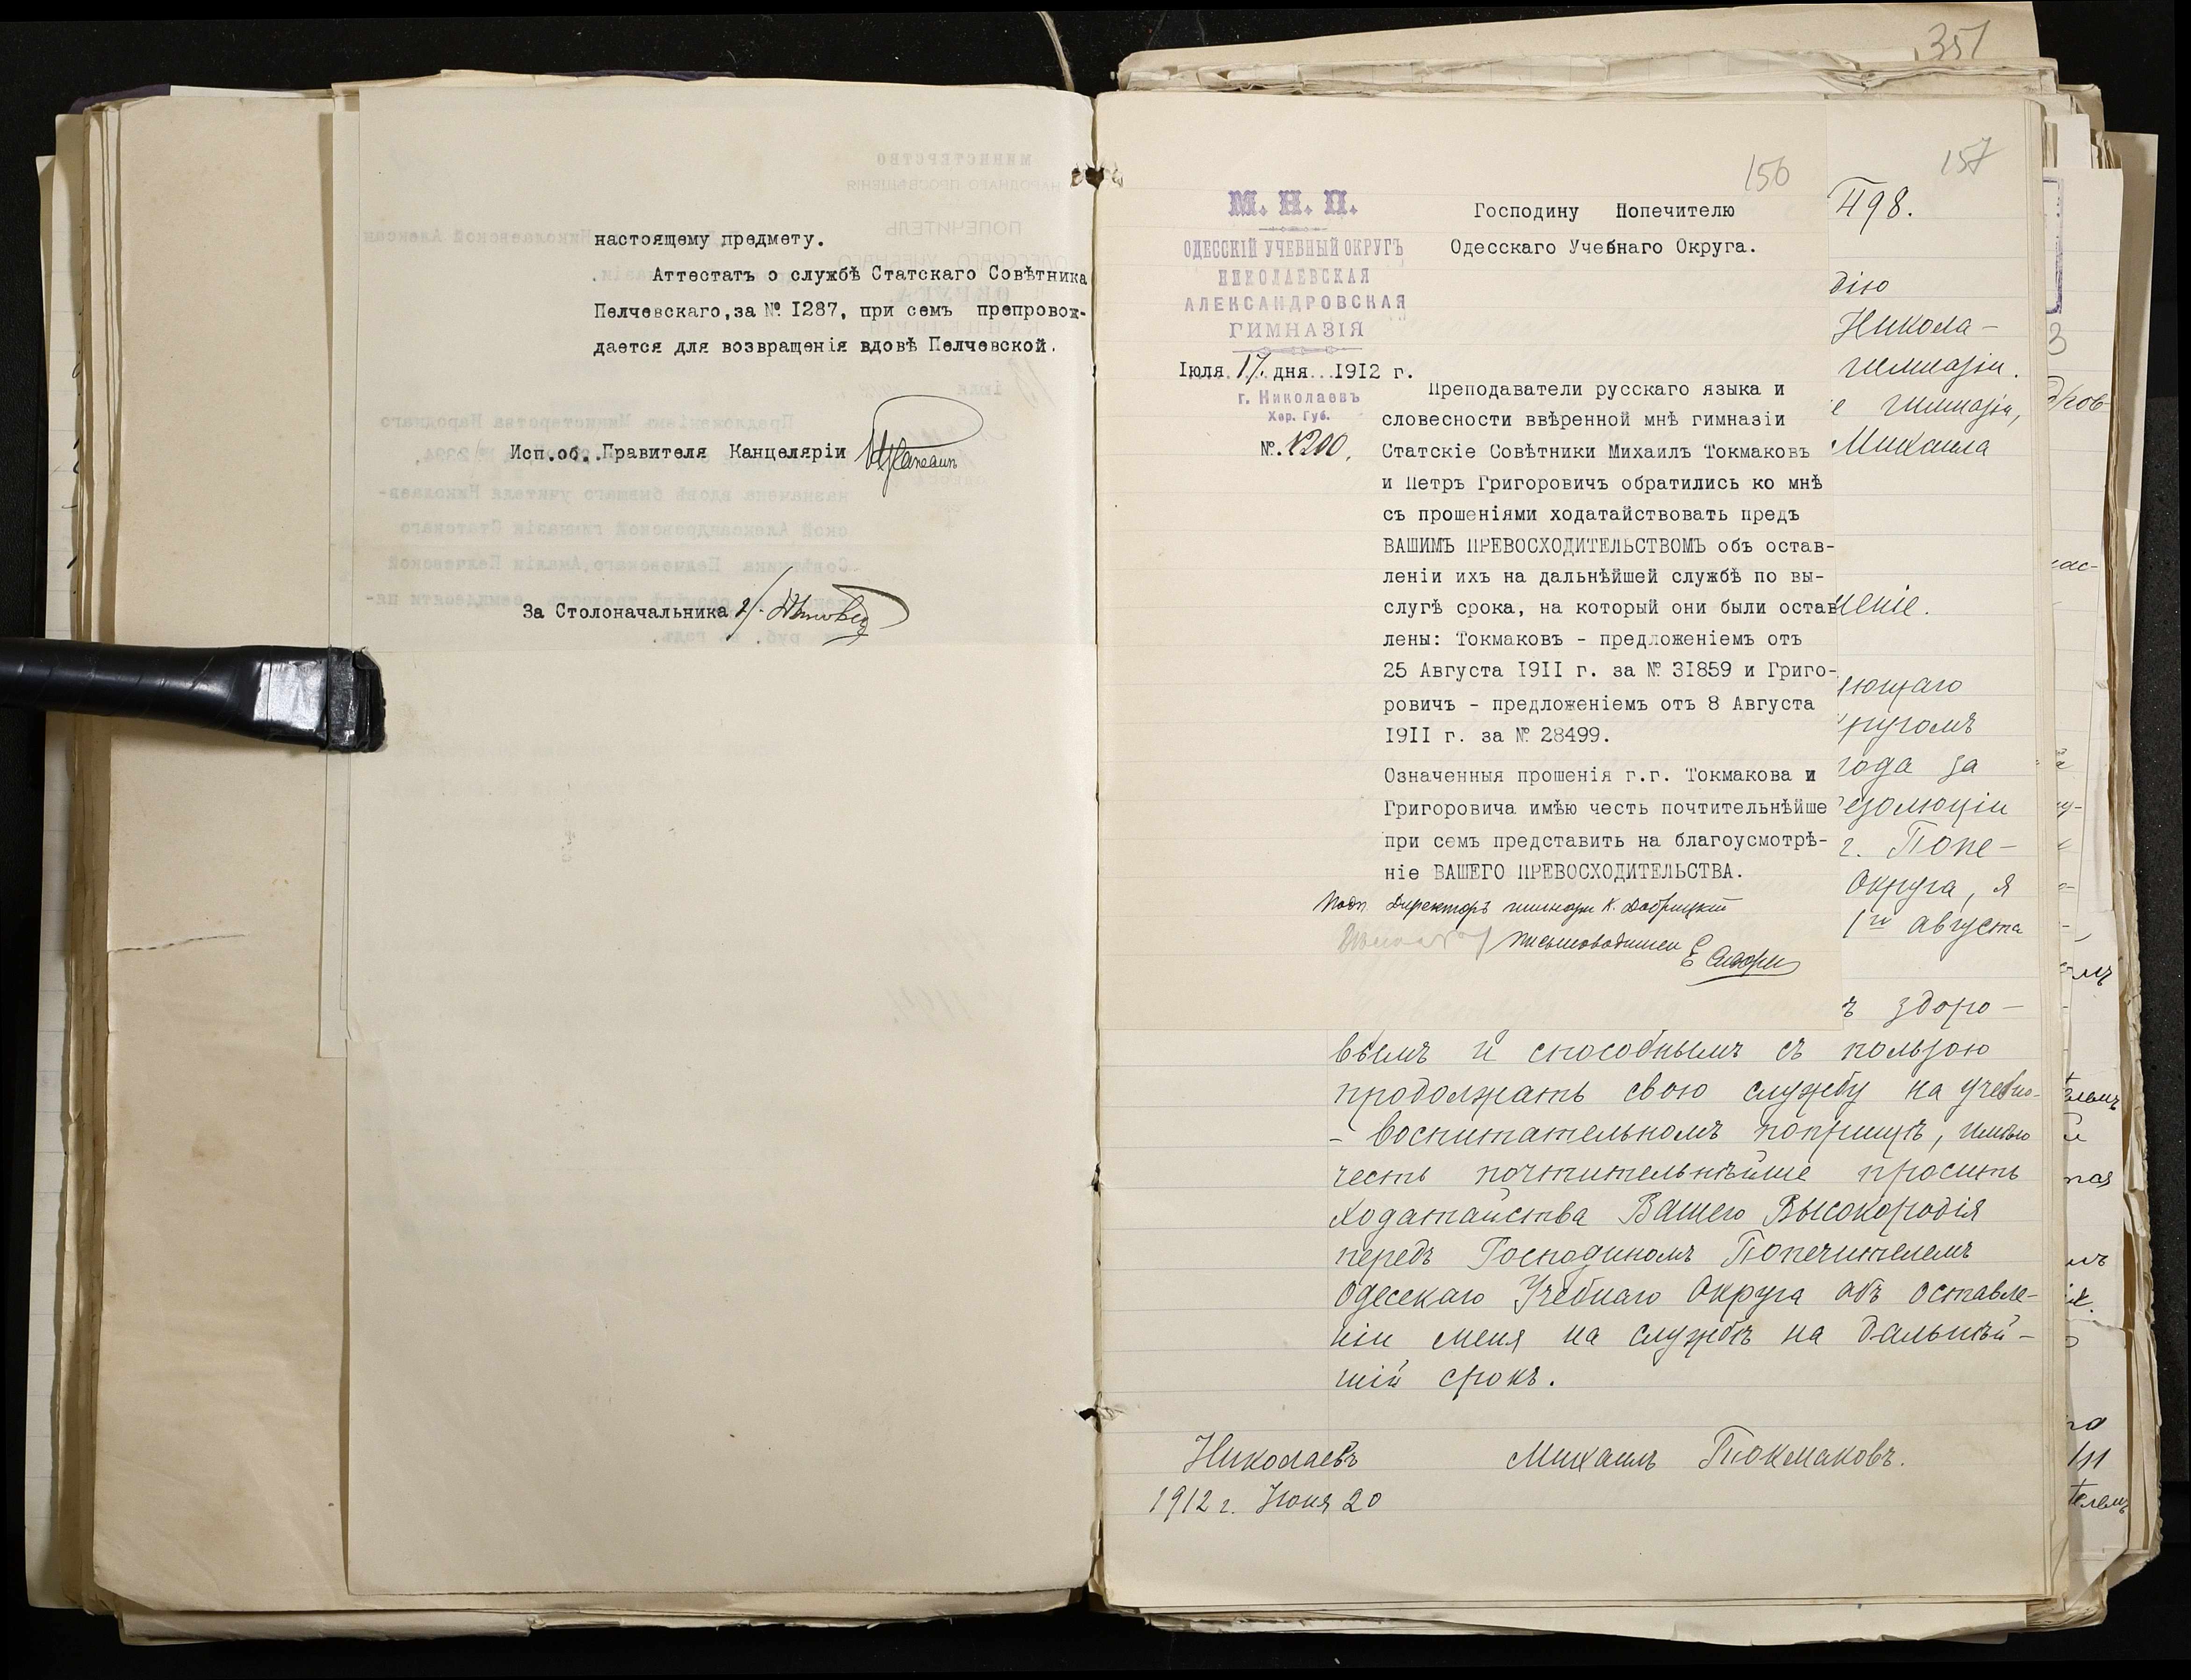 настоящему предмету.
Аттестатъ о службѣ Статскаго Совѣтника
Пелчевскаго, за № I287, при семъ препровож-
дается для возвращенія вдовѣ Пелчевской.
Исп.об. Правителя Канцеляріи
За Столоначальника
351
156
М. Н. П.
ОДЕССКІЙ УЧЕБНЫЙ ОКРУГЪ
НИКОЛАЕВСКАЯ
АЛЕКСАНДРОВСКАЯ
ГИМНАЗІЯ
Іюля 17. дня 1912 г.
г. Николаевъ
Хер. Губ.
№. 1200.
Господину Попечителю
Одесскаго Учебнаго Округа.
Преподаватели русскаго языка и
словесности ввѣренной мнѣ гимназіи
Статскіе Совѣтники Михаилъ Токмаковъ
и Петръ Григоровичъ обратились ко мнѣ
съ прошеніями ходатайствовать предъ
ВАШИМЪ ПРЕВОСХОДИТЕЛЬСТВОМЪ объ остав-
леніи ихъ на дальнѣйшей службѣ по вы-
слугѣ срока, на который они были остав
лены: Токмаковъ - предложеніемъ отъ
25 Августа I9II г. за № 3I859 и Григо-
ровичъ - предложеніемъ отъ 8 Августа
I9II г. за № 28499.
Означенныя прошенія г.г. Токмакова и
Григоровича имѣю честь почтительнѣйше
при семъ представить на благоусмотрѣ-
ніе ВАШЕГО ПРЕВОСХОДИТЕЛЬСТВА.
Подп. Директоръ гимназіи К. Добрицкій
письмоводитель
157
498.
дію
Никола-
гимназіи.
е гимназіи,
Михаила
шеніе.
ляющаго
кругомъ
года за
резолюціи
г. Попе-
Округа, я
1го августа
ъ здоро-
вымъ и способнымъ съ пользою
продолжать свою службу на учебно-
- воспитательномъ поприщѣ, имѣю
честь почтительнѣйше просить
ходатайства Вашего Высокородія
передъ Господиномъ Попечителемъ
Одесскаго Учебнаго Округа объ оставле-
ніи меня на службѣ на дальнѣй-
шій срокъ.
Николаевъ Михаилъ Токмаковъ.
1912 г. Іюня 20